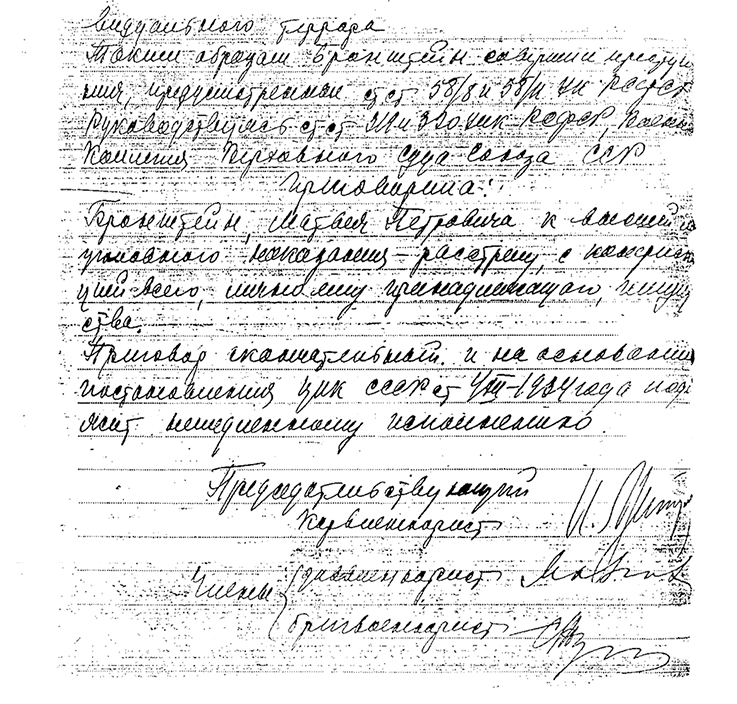 видуального террора
Таким образом Бронштейн совершил преступ
ния, предусмотренные ст.ст. 58/8 и 58/11 УК РСФСР
Руководствуясь ст.ст. 319 и 320 УПК РСФСР, Военн
Коллегия Верховного Суда Союза ССР
Приговорила:
Бронштейн, Матвея Петровича к высшей
уголовного наказания – расстрелу, с конфиска
цией всего, лично ему принадлежащего, имуще
ства.
Приговор окончательный и на основании
постановления ЦИК СССР от 1/XII-1934 года подл
жит немедленному исполнению.
Председательствующий
Корвоенюрист
Члены
диввоенюрист
бригвоенюрист